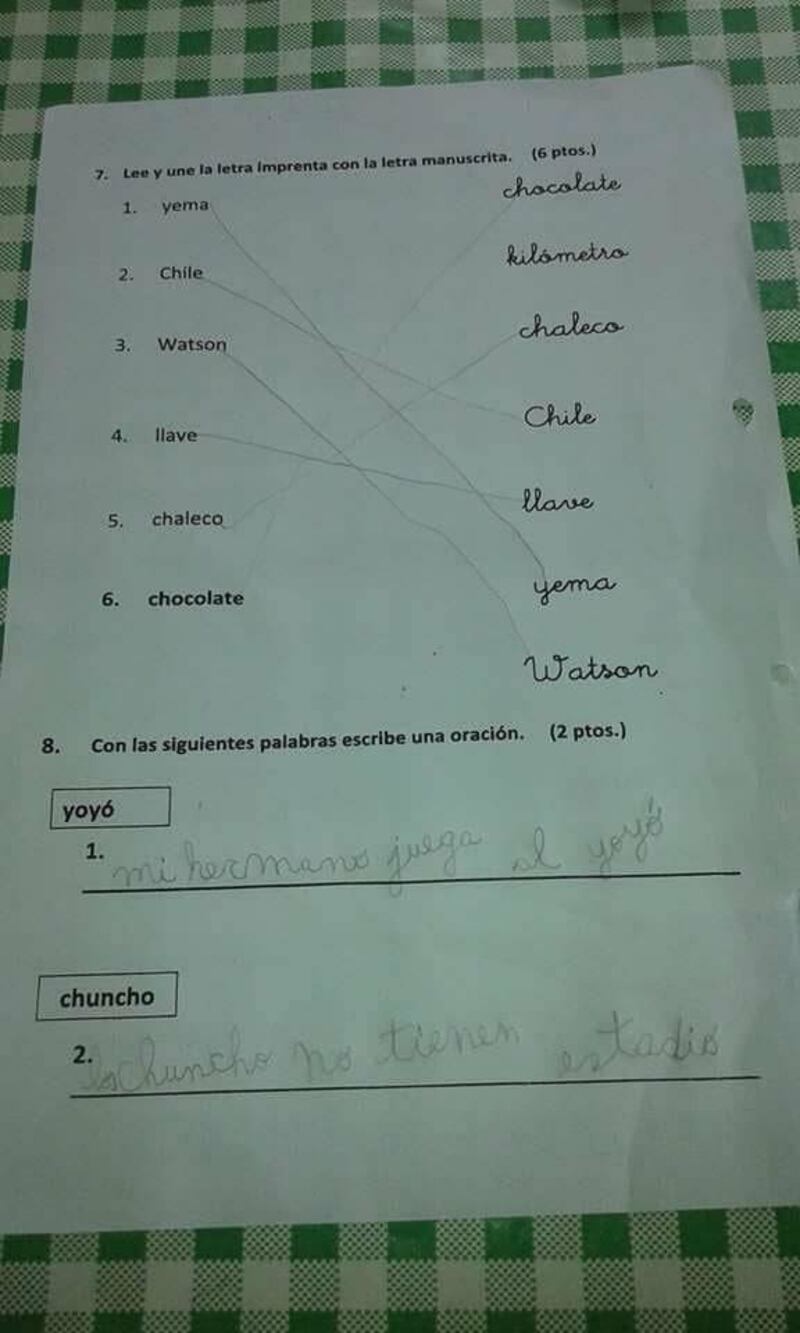 7. Lee y une la letra imprenta con la letra manuscrita. (6 ptos.)
1. yema
chocolate
2. Chile
kilómetro
3. Watson
chaleco
4. llave
Chile
5. chaleco
llave
6. chocolate
yema
Watson
8. Con las siguientes palabras escribe una oración. (2 ptos.)
yoyó
1. mi hermano juega al yoyó
chuncho
2. los chuncho no tienen estadio